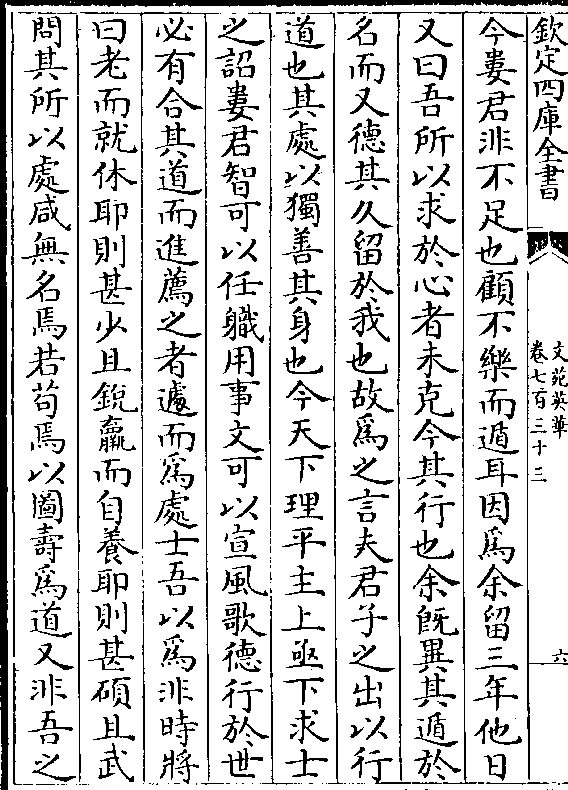 欽定四庫全書
文苑英華
卷七百三十三
六
今婁君非不足也顧不樂而遁耳因爲余留三年他日
又曰吾所以求於心者未克今其行也余既異其遁於
名而又德其久留於我也故爲之言夫君子之出以行
道也其處以獨善其身也今天下理平主上亟下求士
之詔婁君智可以任職用事文可以宣風歌德行於世
必有合其道而進薦之者遽而爲處士吾以爲非時將
曰老而就休耶則甚少且銳羸而自養耶則甚碩且武
問其所以處咸無名焉若苟焉以圖壽爲道又非吾之